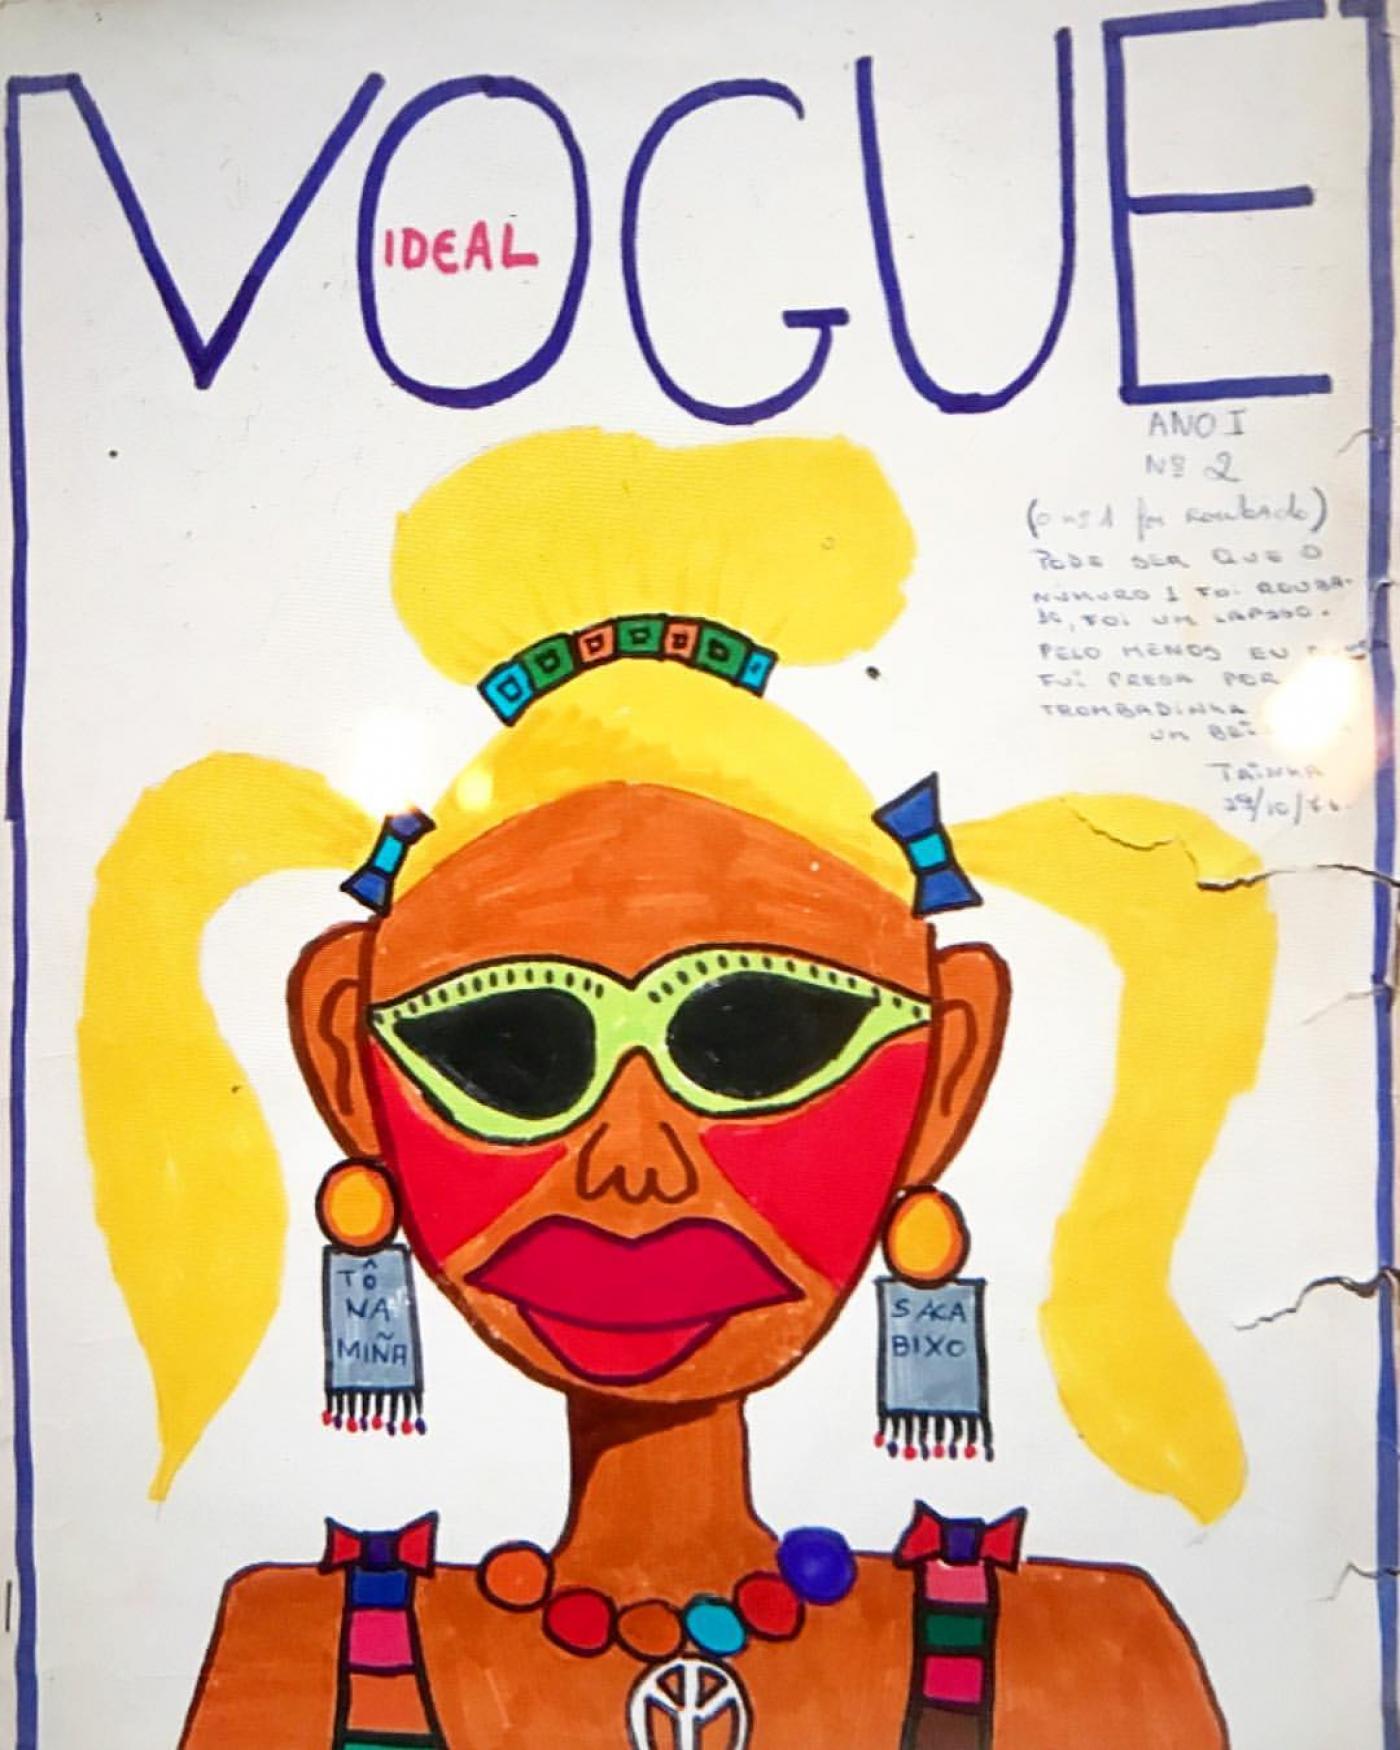 VOGUE
IDEAL
ANO I
Nº 2
(o nº 1 foi roubado)
PODE SER QUE O
NÚMURO 1 FOI ROUBA-
DO, FOI UM LAPSSO.
PELO MENOS EU
FUI PRESA POR
TROMBADINHA
UM
TAINHA
TÔ
NA
MIÑA
SACA
BIXO